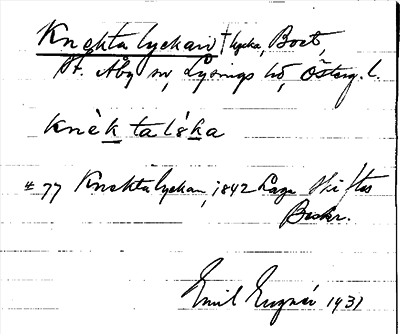 Knektalyckan † lycka, Boet,
St. Åby sn, Lysings hd, Österg. l.
knèktalıs̀ka
# 77 Knektalyckan, 1842 Laga Skiftes
Beskr.
Emil 1931